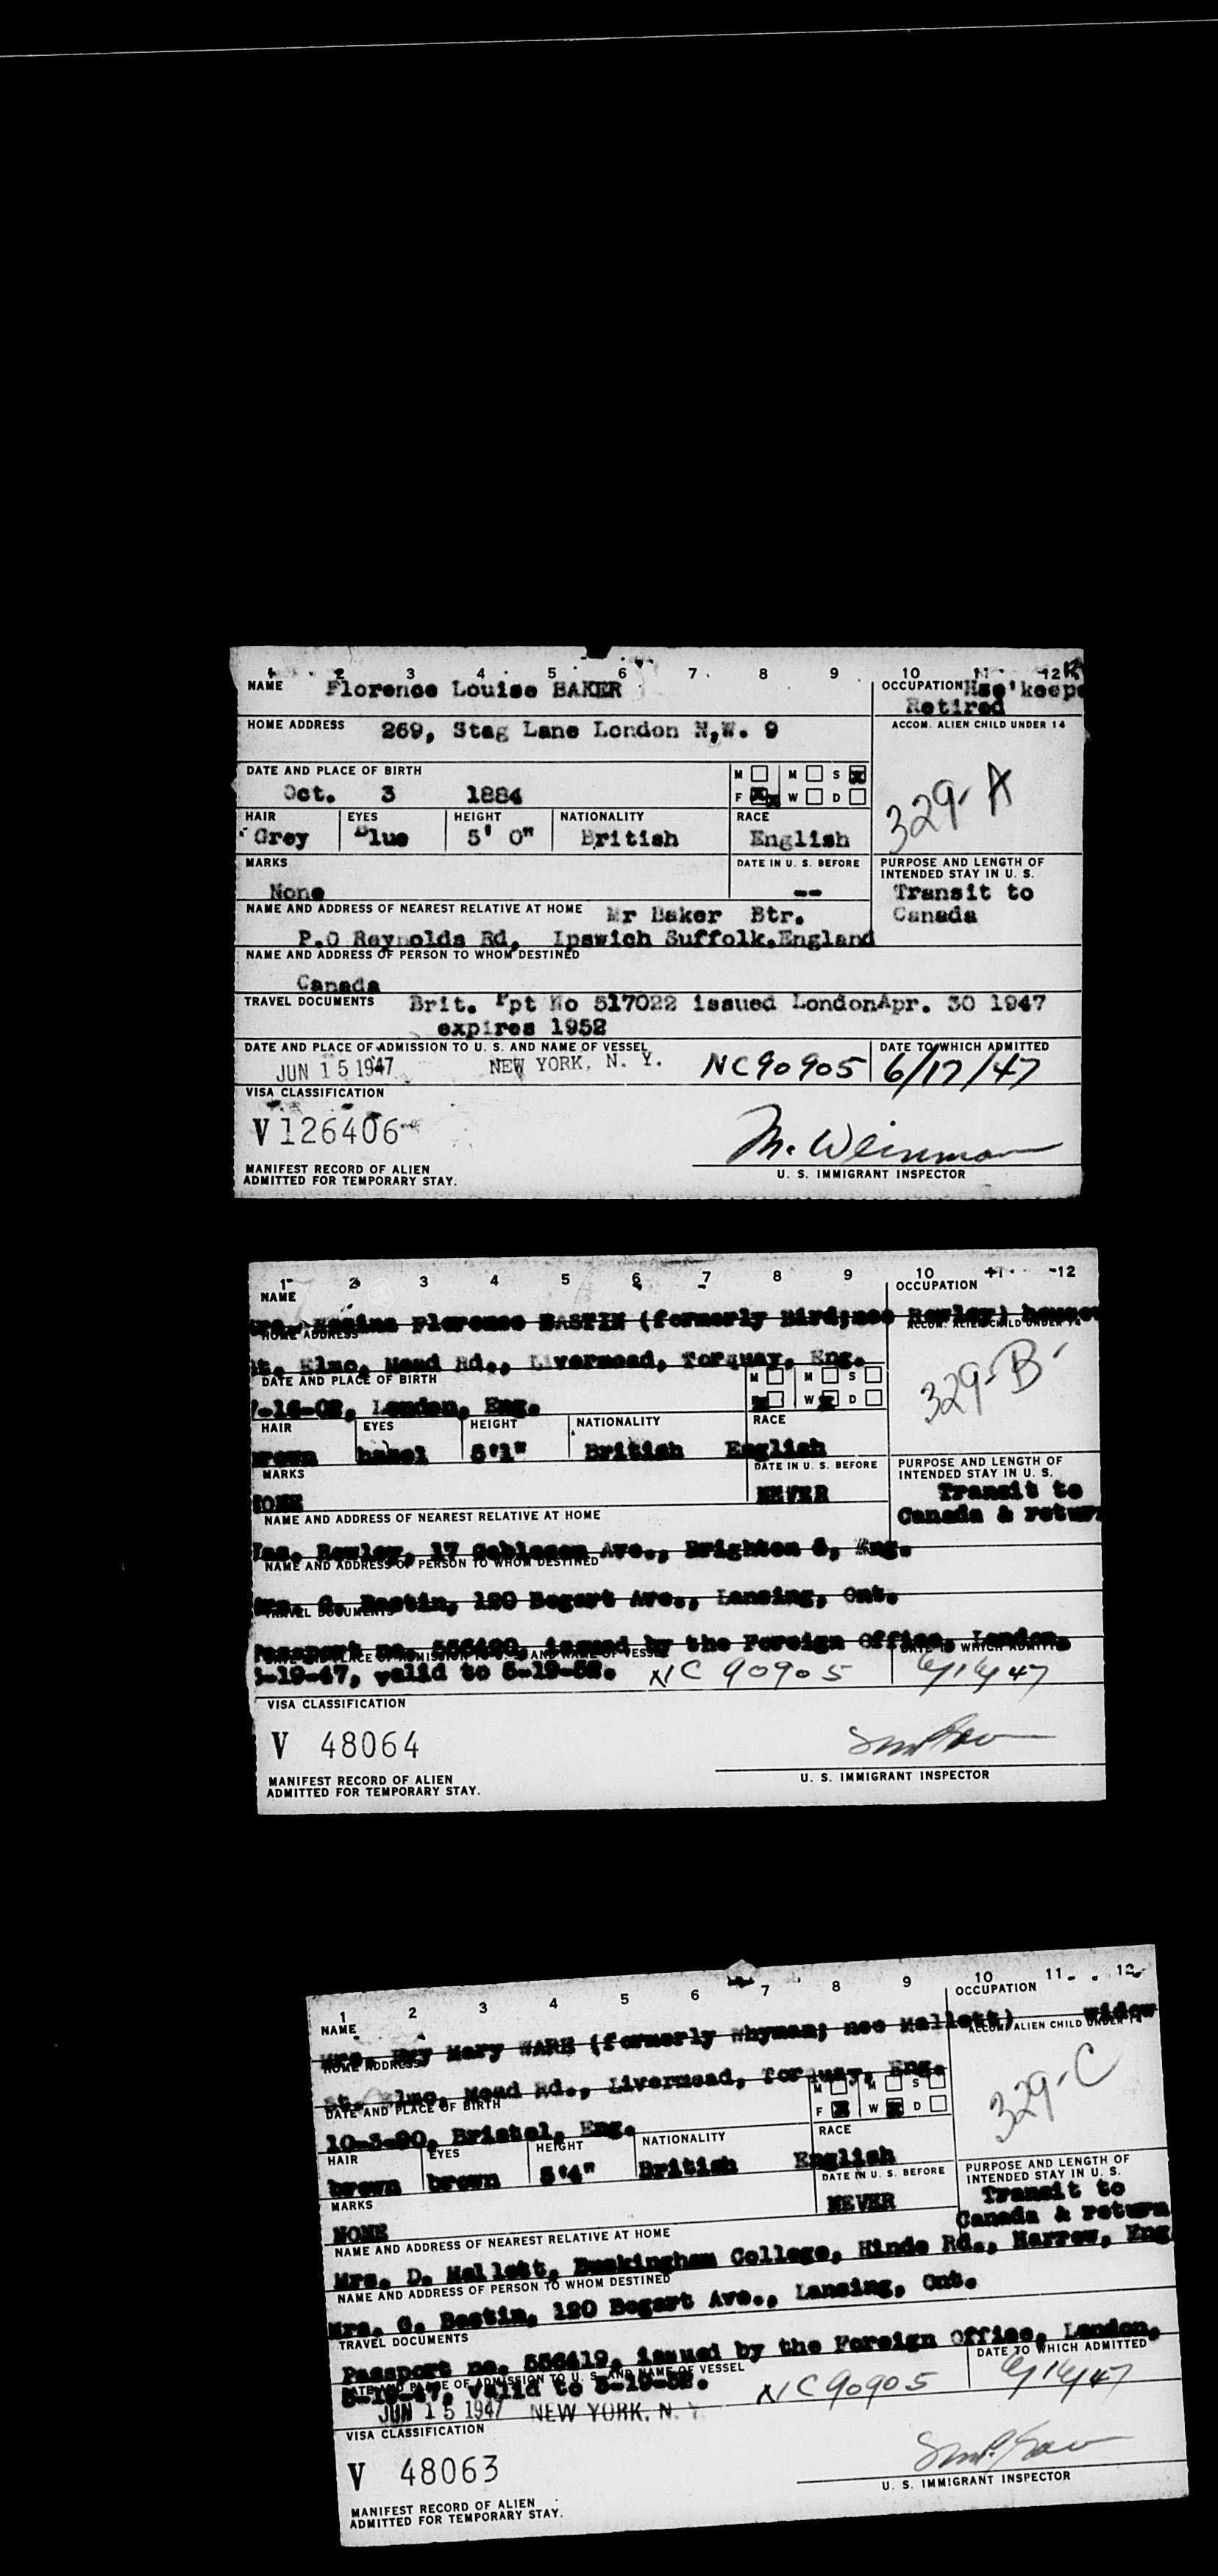 1 2 3 4 5 6 7 8 9 10 11 12
NAME Florence Louise BAKER
OCCUPATION Hse'keepe
Retired
HOME ADDRESS 269, Stag Lane London N,W. 9
ACCOM. ALIEN CHILD UNDER 14
329-A
DATE AND PLACE OF BIRTH
M M S
Oct. 3 1884
F W D
HAIR EYES HEIGHT NATIONALITY RACE
Grey Blue 5' 0" British English
MARKS DATE IN U. S. BEFORE
None --
PURPOSE AND LENGTH OF
INTENDED STAY IN U. S.
Transit to
Canada
NAME AND ADDRESS OF NEAREST RELATIVE AT HOME Mr Baker Btr.
P.O Reynolds Rd, Ipswich Suffolk.England
NAME AND ADDRESS OF PERSON TO WHOM DESTINED
Canada
TRAVEL DOCUMENTS Brit. Ppt No 517022 issued LondonApr. 30 1947
expires 1952
DATE AND PLACE OF ADMISSION TO U. S. AND NAME OF VESSEL DATE TO WHICH ADMITTED
JUN 15 1947 NEW YORK, N. Y. NC90905 6/17/47
VISA CLASSIFICATION
V 126406
M. Weinman
MANIFEST RECORD OF ALIEN
ADMITTED FOR TEMPORARY STAY.
U. S. IMMIGRANT INSPECTOR
1 2 3 4 5 6 7 8 9 10 11 12
NAME OCCUPATION
Florence BASTIN (formerly Bird;nee Rowley)
HOME ADDRESS ACCOM. ALIEN CHILD UNDER 14
St. Elmo, Mead Rd., Livermead, Torquay, Eng.
329-B
DATE AND PLACE OF BIRTH
M M S
London, Eng.
W D
HAIR EYES HEIGHT NATIONALITY RACE
brown hazel 5'1" British English
MARKS DATE IN U. S. BEFORE
NONE NEVER
PURPOSE AND LENGTH OF
INTENDED STAY IN U. S.
Transit to
Canada & return
NAME AND ADDRESS OF NEAREST RELATIVE AT HOME
Rowley, 17 Ave., Brighton 6, Eng.
NAME AND ADDRESS OF PERSON TO WHOM DESTINED
Mrs. G. Bastin, 120 Bogart Ave., Lansing, Ont.
TRAVEL DOCUMENTS
Passport no. 556420, issued by the Foreign Office, London,
5-19-47, valid to 5-19-52. NC 90905 6/16/47
VISA CLASSIFICATION
V 48064
MANIFEST RECORD OF ALIEN
ADMITTED FOR TEMPORARY STAY.
U. S. IMMIGRANT INSPECTOR
1 2 3 4 5 6 7 8 9 10 11 12
NAME OCCUPATION
Mrs. Mary WARE (formerly Whyman; nee Mallett) widow
HOME ADDRESS ACCOM. ALIEN CHILD UNDER 14
St. Elmo, Mead Rd., Livermead, Torquay, Eng.
329-C
DATE AND PLACE OF BIRTH
M M S
10-3-90, Bristol, Eng.
F W D
HAIR EYES HEIGHT NATIONALITY RACE
brown brown 5'4" British English
MARKS DATE IN U. S. BEFORE
NONE NEVER
PURPOSE AND LENGTH OF
INTENDED STAY IN U. S.
Transit to
Canada & return
NAME AND ADDRESS OF NEAREST RELATIVE AT HOME
Mrs. D. Mallett, Buckingham College, Hinde Rd., Harrow, Eng
NAME AND ADDRESS OF PERSON TO WHOM DESTINED
Mrs. G. Bastin, 120 Bogart Ave., Lansing, Ont.
TRAVEL DOCUMENTS
Passport no. 556419, issued by the Foreign Office, London,
DATE AND PLACE OF ADMISSION TO U. S. AND NAME OF VESSEL DATE TO WHICH ADMITTED
5-19-47, valid to 5-19-52. NC90905 6/16/47
JUN 15 1947 NEW YORK, N. Y
VISA CLASSIFICATION
V 48063
MANIFEST RECORD OF ALIEN
ADMITTED FOR TEMPORARY STAY.
U. S. IMMIGRANT INSPECTOR